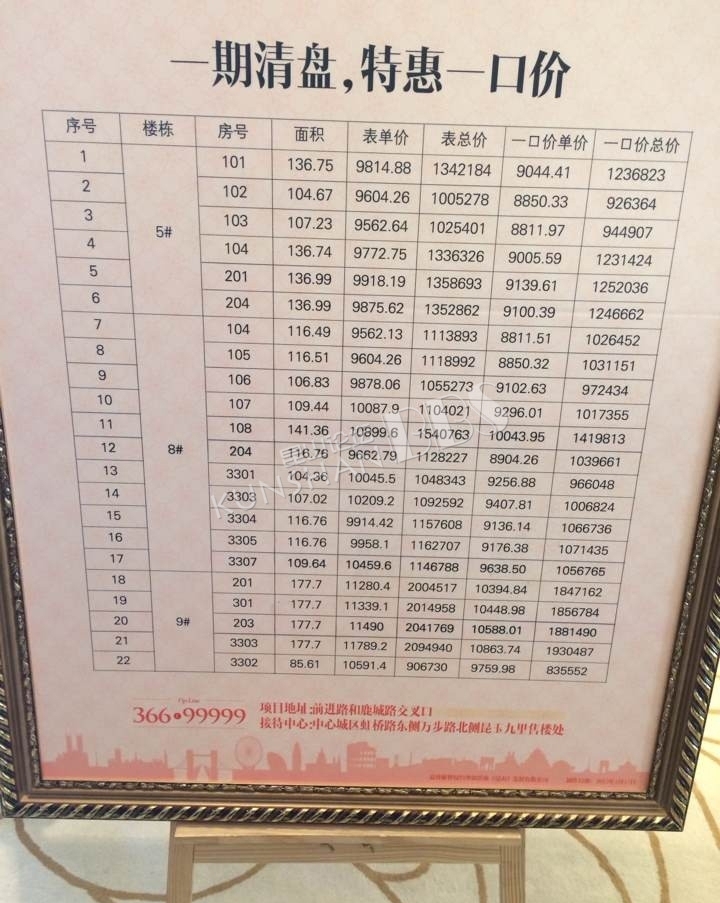 一期清盘,特惠一口价
序号 楼栋 房号 面积 表单价 表总价 一口价单价 一口价总价
1 5# 101 136.75 9814.88 1342184 9044.41 1236823
2 102 104.67 9604.26 1005278 8850.33 926364
3 103 107.23 9562.64 1025401 8811.97 944907
4 104 136.74 9772.75 1336326 9005.59 1231424
5 201 136.99 9918.19 1358693 9139.61 1252036
6 204 136.99 9875.62 1352862 9100.39 1246662
7 8# 104 116.49 9562.13 1113893 8811.51 1026452
8 105 116.51 9604.26 1118992 8850.32 1031151
9 106 106.83 9878.06 1055273 9102.63 972434
10 107 109.44 10087.9 1104021 9296.01 1017355
11 108 141.36 10899.6 1540763 10043.95 1419813
12 204 116.76 9662.79 1128227 8904.26 1039661
13 3301 104.36 10045.5 1048343 9256.88 966048
14 3303 107.02 10209.2 1092592 9407.81 1006824
15 3304 116.76 9914.42 1157608 9136.14 1066736
16 3305 116.76 9958.1 1162707 9176.38 1071435
17 3307 109.64 10459.6 1146788 9638.50 1056765
18 9# 201 177.7 11280.4 2004517 10394.84 1847162
19 301 177.7 11339.1 2014958 10448.98 1856784
20 203 177.7 11490 2041769 10588.01 1881490
21 3303 177.7 11789.2 2094940 10863.74 1930487
22 3302 85.61 10591.4 906730 9759.98 835552
366 99999
项目地址:前进路和鹿城路交叉口
接待中心:中心城区虹桥路东侧万步路北侧昆玉九里售楼处
KUNSHAN